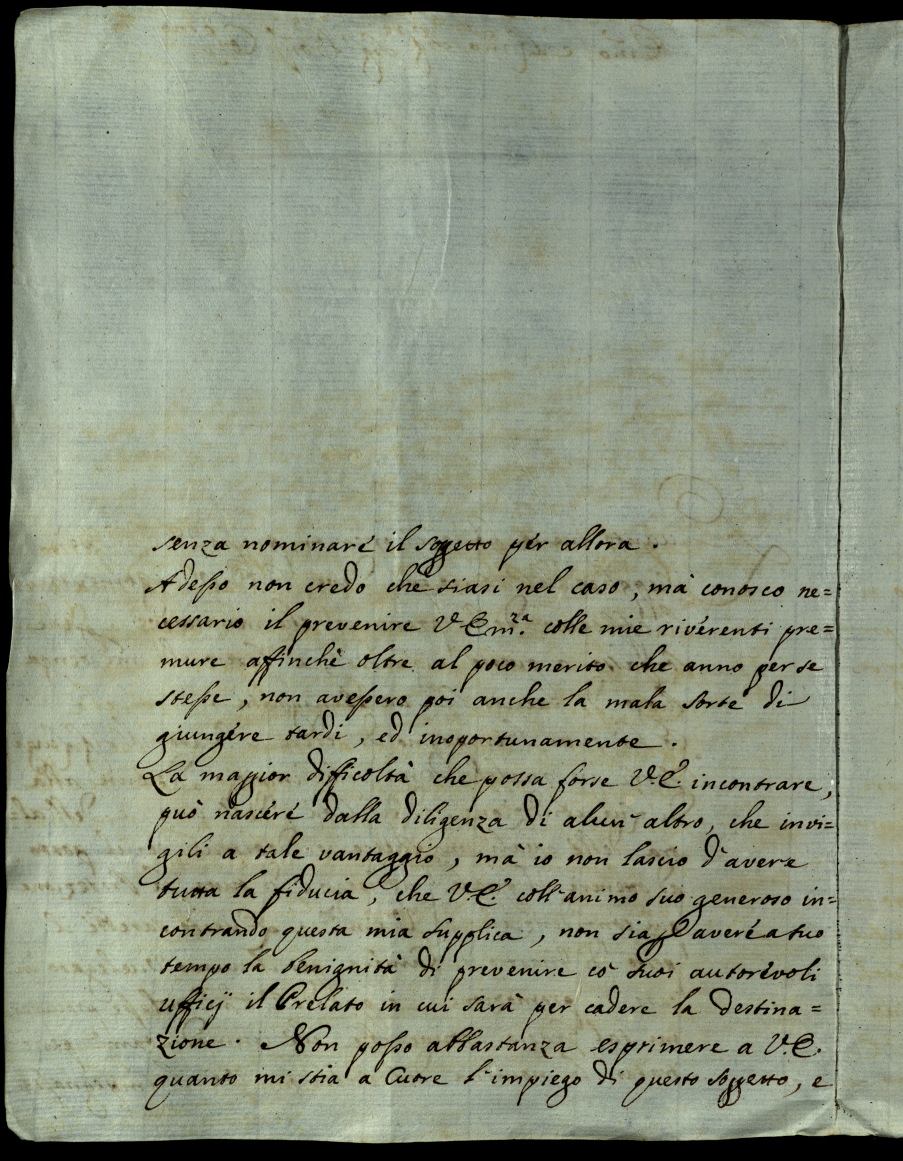 senza nominare il soggetto per allora .
Adesso non credo che siasi nel caso, mà conosco ne=
cessario il prevenire V. Em.za colle mie riverenti pre=
mure affinchè oltre al poco merito che anno per se
stesse, non avessero poi anche la mala sorte di
giungere tardi, ed inoportunamente .
La maggior difficoltà che possa forse V. E. incontrare,
può nascere dalla diligenza di alcun' altro, che invi=
gili a tale vantaggio, mà io non lascio d'avere
tutta la fiducia, che V. E. coll' animo suo generoso in=
contrando questa mia supplica, non sia p avere a suo
tempo la benignità di prevenire co' suoi autorevoli
ufficij il Prelato in cui sarà per cadere la destina=
zione . Non posso abbastanza esprimere a V. E.
quanto mi stia a Cuore l'impiego di questo soggetto, e